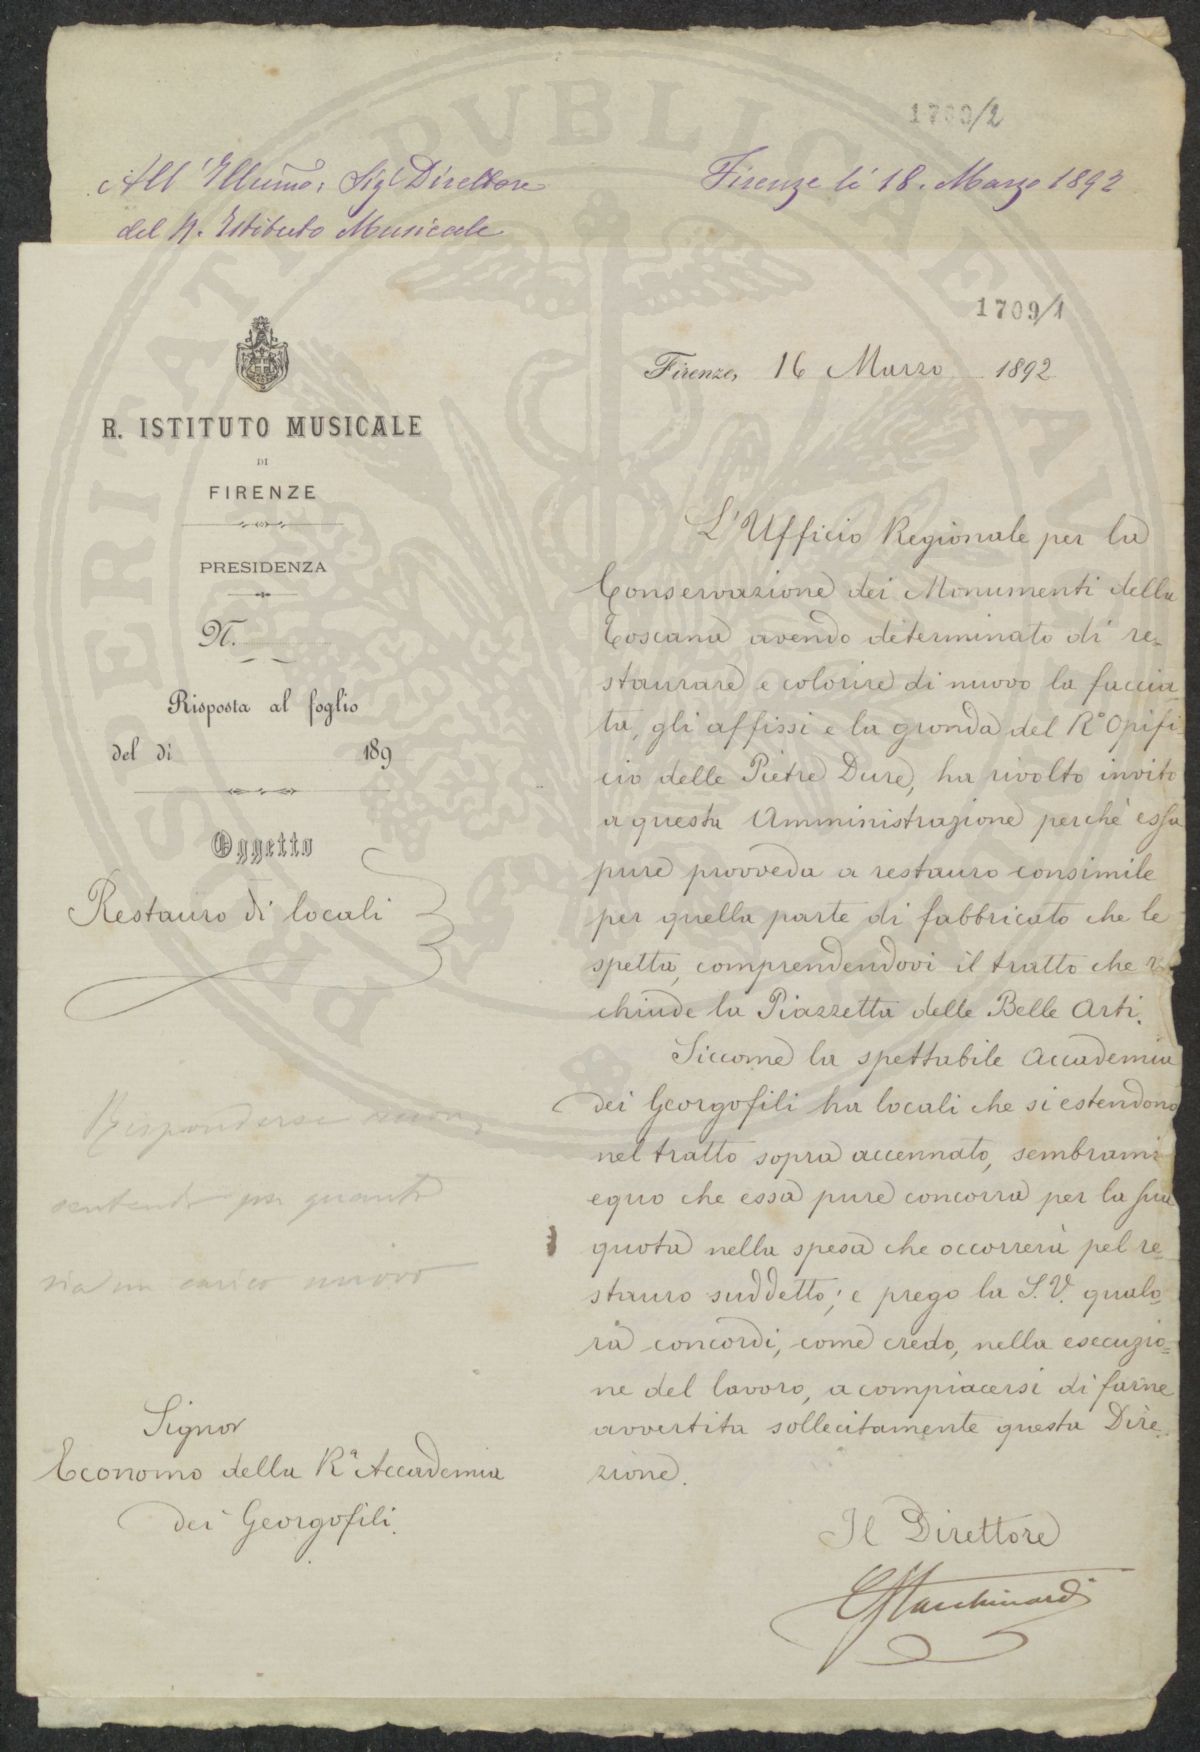 1709/2
All' Illumo: Sigr Direttore
del R. Istituto Musicale
Firenze li 18. Marzo 1892
1709/1
R. ISTITUTO MUSICALE
DI
FIRENZE
PRESIDENZA
N.
Risposta al foglio
del di 189
Oggetto
Restauro di locali
Firenze, 16 Marzo 1892
L'Ufficio Regionale per la
Conservazione dei Monumenti della
Toscana avendo determinato di re-
staurare e colorire di nuovo la faccia-
ta, gli affissi e la gronda del R.° Opifi-
cio delle Pietre Dure, ha rivolto invito
a questa Amministrazione perchè essa
pure provveda a restauro consimile
per quella parte di fabbricato che le
spetta, comprendendovi il tratto che
chiude la Piazzetta delle Belle Arti.
Siccome la spettabile Accademia
dei Georgofili ha locali che si estendono
nel tratto sopra accennato, sembrami
equo che essa pure concorra per la sua
quota nella spesa che occorrerà pel re-
stauro suddetto; e prego la S.V. qualo-
ra concordi, come credo, nella esecuzio-
ne del lavoro, a compiacersi di farne
avvertita sollecitamente questa Dire-
zione.
Rispondersi
per quanto
sia un carico nuovo
Signor
Economo della Rª Accademia
dei Georgofili.
Il Direttore